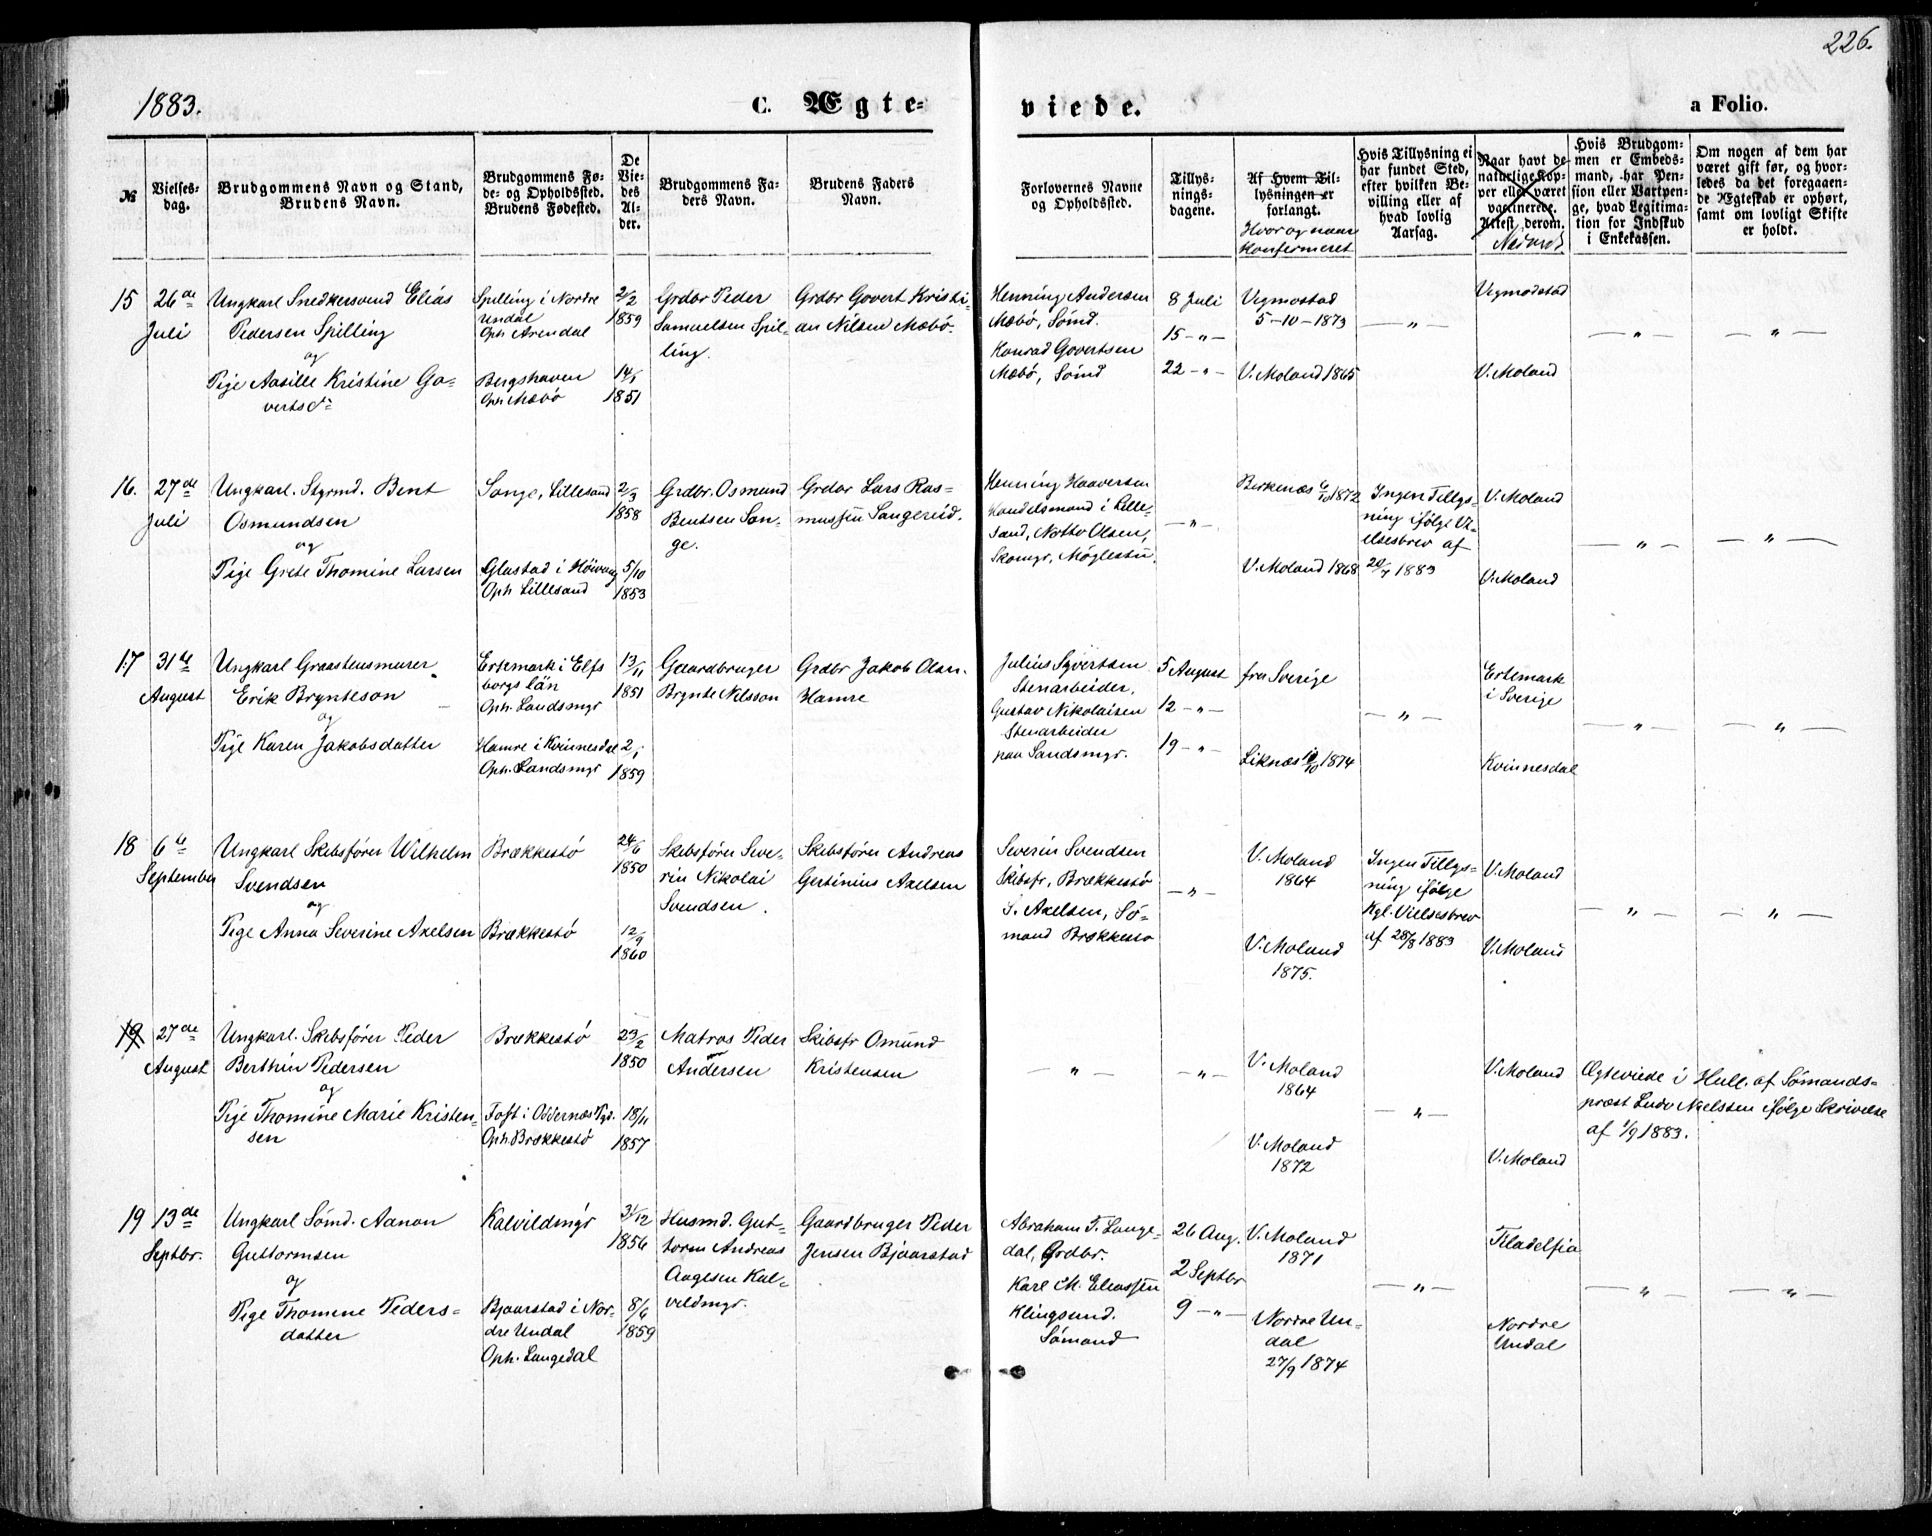 226.
1883.
C. Ægte-
viede.
a Folio.
№
Vielses-
dag.
Brudgommens Navn og Stand,
Brudens Navn.
Brudgommens Fø-
de- og Opholdssted.
Brudens Fødested.
De
Vie-
des
Al-
der.
Brudgommens Fa-
ders Navn.
Brudens Faders
Navn.
Forlovernes Navne
og Opholdssted.
Tillys-
nings-
dagene.
Af Hvem Til-
lysningen er
forlangt.
Hvor og naar
Konfermeret
Hvis Tillysning ei
har fundet Sted,
efter hvilken Be-
villing eller af
hvad lovlig
Aarsag.
Naar havt de
naturlige Kop-
per eller været
vaccinerede.
Attest derom.
Hvis Brudgom-
men er Embeds-
mand, har Pen-
sion eller Vartpen-
ge, hvad Legitima-
tion for Indskud
i Enkekassen.
Om nogen af dem har
været gift før, og hvor-
ledes da det foregaaen-
de Ægteskab er ophørt,
samt om lovligt Skifte
er holdt.
15
26de
Juli
Ungkarl Snedkersvend Elias
Pedersen Spilling
og
Pige Aasille Kristine Go-
vertsdr
Spilling i Nordre
Undal
Oph Arendal
Bergshaven
Oph Mæbø
2/2
1859
14/1
1851
Grdbr Peder
Samuelsen Spil-
ling.
Grdbr Govert Kristi-
an Nilsen Mæbø.
Henning Andersen
Mæbø, Sømd.
Konrad Govertsen
Mæbø, Sømd
8 Juli
15 – " –
22 – " –
Vegmostad
5-10-1873
V. Moland 1865
– " –
Vegmodstad
V. Moland
– " –
– " –
16.
27de
Juli
Ungkarl. Styrmd. Bent
Osmundsen
og
Pige Grete Thomine Larsen
Sange, Lillesand
Glastad i Høivaag
Oph Lillesand
2/3
1858
5/10
1853
Grdbr. Osmund
Bentsen San-
ge.
Grdbr Lars Ras-
mussen Sangereid.
Henning Haaversen
Handelsmand i Lille-
sand, Notto Olsen,
Skomgr, Møglestu.
– " –
Birkenæs 6/10 1872
V. Moland 1868
Ingen Tillys-
ning ifølge Vi-
elsesbrev af
20/7 1883
V. Moland
V. Moland
– " –
– " –
17
31te
August
Ungkarl Graastensmurer
Erik Brynteson
og
Pige Karen Jakobsdatter
Ertemark i Elfs
borgs län
Oph. Sandsmgr
Hamre i Kvinnesdal
Oph. Sandsmgr
13/11
1851
1859
Gaardbruger
Brynte Nilsson
Grdbr Jakob Olsen
Hamre
Julius Syvertsen
Stenarbeider,
Gustav Nikolaisen
Stenarbeider
paa Sandsmgr.
5 August
12 – " –
19 – " –
fra Sverige
Liknæs 1874
– " –
Ertemark
i Sverige
Kvinnesdal
– " –
– " –
18
6te
September
Ungkarl Skibsfører Wilhelm
Svendsen
og
Pige Anna Severine Axelsen
Brækkestø
Brækkestø
24/6
1850
12/9
1860
Skibsfører Seve-
rin Nikolai
Svendsen.
Skibsfører Andreas
Gertinius Axelsen
Severin Svendsen
Skibsfr, Brækkestø
S. Axelsen, Sø-
mand Brækkestø
– " –
V. Moland
1864
V. Moland
1875.
Ingen Tillys-
ning ifølge
Kgl. Vielsesbrev
af 28/8 1883
V. Moland
V. Moland
– " –
– " –
19
27de
August
Ungkarl. Skibsfører Peder
Berthin Pedersen
og
Pige Thomine Marie Kristen-
sen
Brækkestø
Toft i Oddernæs Pgd.
Oph. Brækkestø
23/2
1850
18/11
1857
Matros Peder
Andersen
Skibsfr Omund
Kristensen
– " –
– " –
V. Moland
1864
V. Moland
1872
– " –
V. Moland
V. Moland
Ægteviede i Hull. af Sømands-
præst Ludv Nielssen ifølge Skrivelse
af 1/9 1883.
19
13de
Septbr.
Ungkarl Sømd. Aanon
Guttormsen
og
Pige Thomine Peders-
datter
Kalvildmyr
Bjaarstad i Nor-
dre Undal
Oph. Langedal
31/12
1856
8/6
1859
Husmd. Gut-
torm Andreas
Aagesen Kal-
vildmyr.
Gaardbruger Peder
Jensen Bjaarstad
Abraham T. Lange-
dal, Grdbr.
Karl M. Eliassen
Klingsund.
Sømand
26 Aug.
2 Septbr
9 – " –
V. Moland
1871
Nordre Un-
dal
27/9 1874
– " –
Filadelfia
Nordre
Undal
– " –
– " –